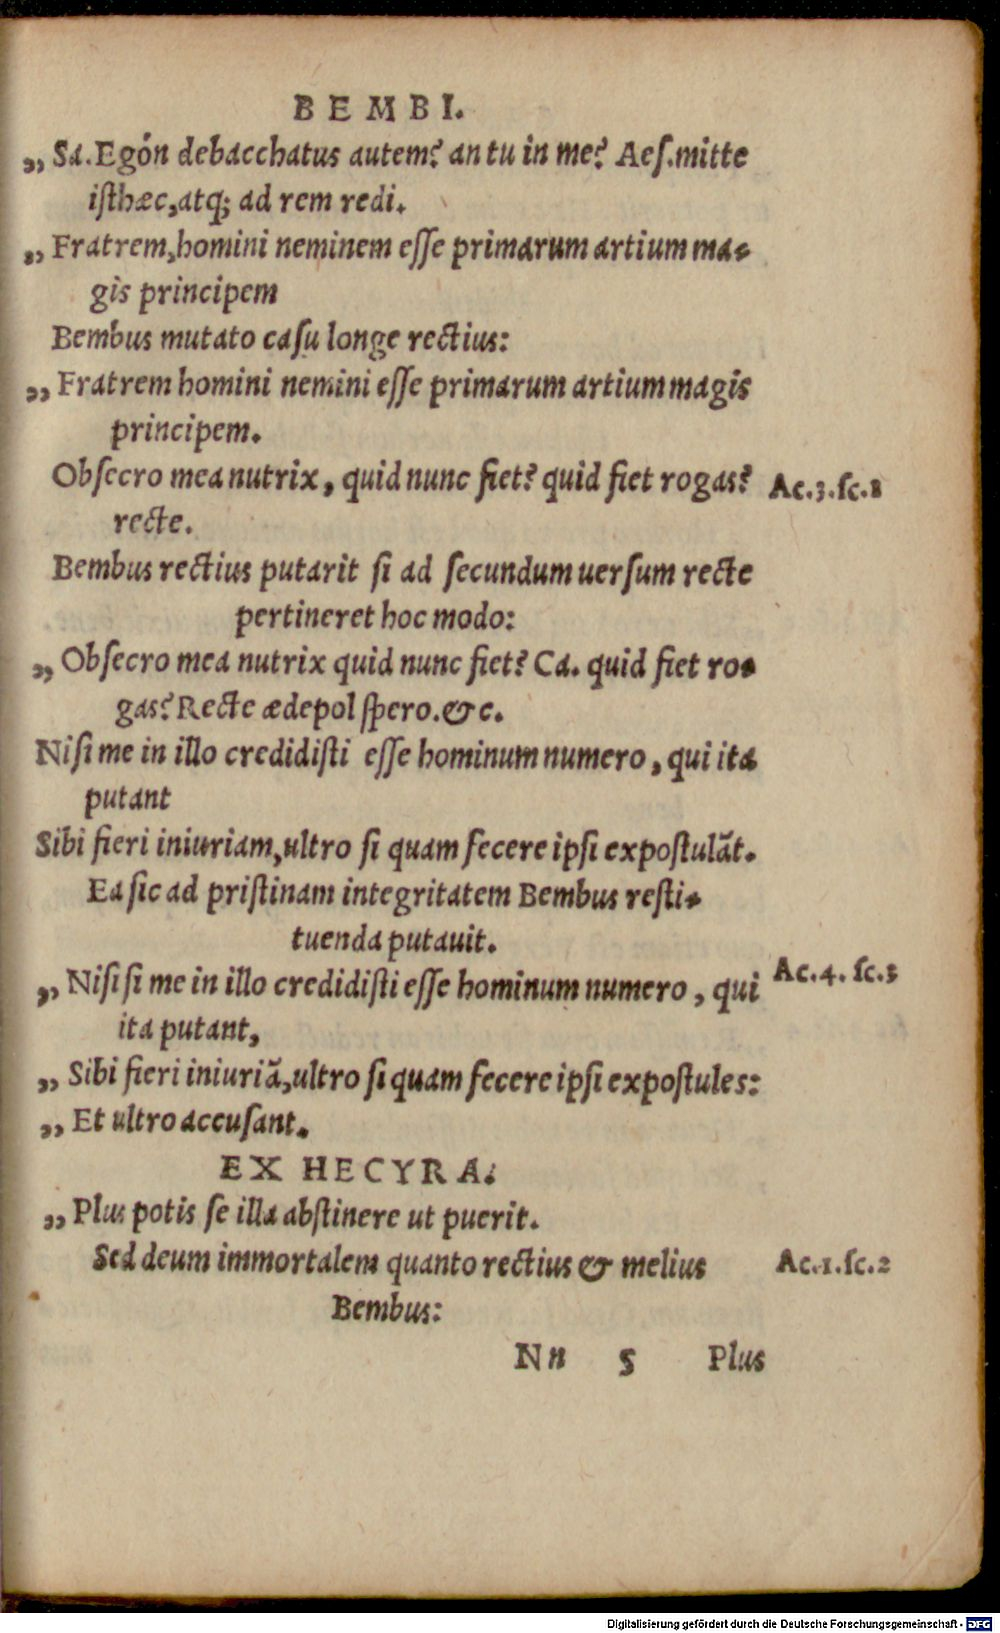 BEMBI.
„ Sa.Egón debacchatus autem? an tu in me? Aeſ.mitte
iſthæc,atq; ad rem redi.
„ Fratrem,homini neminem eſſe primarum artium ma-
gis principem
Bembus mutato caſu longe rectius:
„ Fratrem homini nemini eſſe primarum artium magis
principem.
Obſecro mea nutrix, quid nunc fiet? quid fiet rogas? Ac.3.ſc.1
recte.
Bembus rectius putarit ſi ad ſecundum uerſum recte
pertineret hoc modo:
„ Obſecro mea nutrix quid nunc fiet? Ca. quid fiet ro-
gas? Recte ædepol ſpero.&c.
Niſi me in illo credidiſti eſſe hominum numero, qui ita
putant
Sibi fieri iniuriam,ultro ſi quam fecere ipſi expoſtulãt.
Ea ſic ad priſtinam integritatem Bembus reſti-
tuenda putauit.
„ Niſi ſi me in illo credidiſti eſſe hominum numero, qui Ac.4. ſc.3
ita putant,
„ Sibi fieri iniuriã,ultro ſi quam fecere ipſi expoſtules:
„ Et ultro accuſant.
EX HECYRA.
„ Plus potis ſe illa abſtinere ut puerit.
Sed deum immortalem quanto rectius & melius Ac.1.ſc.2
Bembus:
Nn 5 Plus
Digitalisierung gefördert durch die Deutsche Forschungsgemeinschaft - DFG